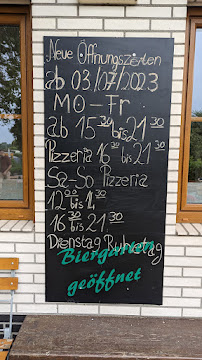 Neue Öffnungszeiten
ab 03/07/2023
MO-Fr
ab 15³⁰ bis 21³⁰
Pizzeria 16³⁰ bis 21³⁰
Sa-So Pizzeria
12⁰⁰ bis 14³⁰
16³⁰ bis 21³⁰
Dienstag Ruhetag
Biergarten
geöffnet